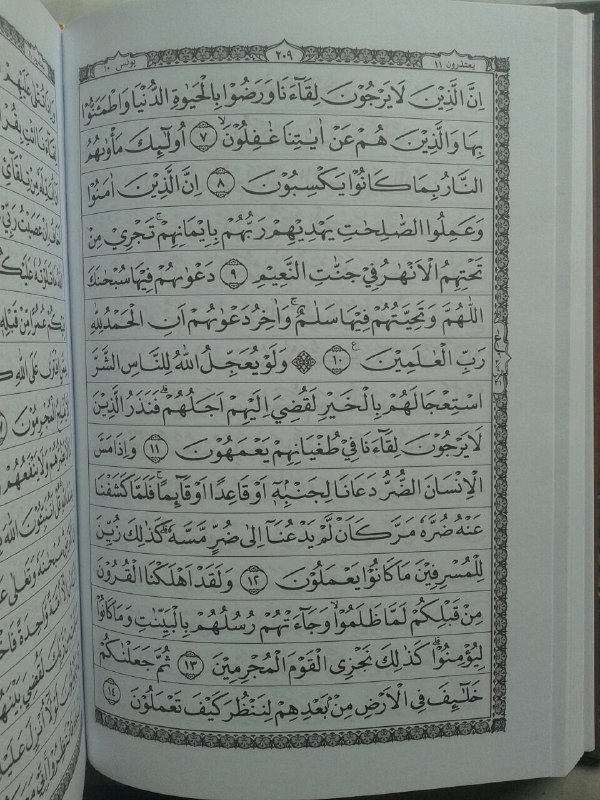 يعتذرون ١١ ٢٠٩ يونس ١٠
اِنَّ الَّذِيْنَ لَا يَرْجُوْنَ لِقَاۤءَنَا وَرَضُوْا بِالْحَيٰوةِ الدُّنْيَا وَاطْمَـَٔنُّوْا
بِهَا وَالَّذِيْنَ هُمْ عَنْ اٰيٰتِنَا غٰفِلُوْنَۙ ٧ اُولٰۤىِٕكَ مَأْوٰىهُمُ
النَّارُ بِمَا كَانُوْا يَكْسِبُوْنَ ٨ اِنَّ الَّذِيْنَ اٰمَنُوْا
وَعَمِلُوا الصّٰلِحٰتِ يَهْدِيْهِمْ رَبُّهُمْ بِاِيْمَانِهِمْۚ تَجْرِيْ مِنْ
تَحْتِهِمُ الْاَنْهٰرُ فِيْ جَنّٰتِ النَّعِيْمِ ٩ دَعْوٰىهُمْ فِيْهَا سُبْحٰنَكَ
اللّٰهُمَّ وَتَحِيَّتُهُمْ فِيْهَا سَلٰمٌۚ وَاٰخِرُ دَعْوٰىهُمْ اَنِ الْحَمْدُ لِلّٰهِ
رَبِّ الْعٰلَمِيْنَ ࣖ ١٠ ۞ وَلَوْ يُعَجِّلُ اللّٰهُ لِلنَّاسِ الشَّرَّ
اسْتِعْجَالَهُمْ بِالْخَيْرِ لَقُضِيَ اِلَيْهِمْ اَجَلُهُمْۗ فَنَذَرُ الَّذِيْنَ
لَا يَرْجُوْنَ لِقَاۤءَنَا فِيْ طُغْيَانِهِمْ يَعْمَهُوْنَ ١١ وَاِذَا مَسَّ
الْاِنْسَانَ الضُّرُّ دَعَانَا لِجَنْۢبِهٖٓ اَوْ قَاعِدًا اَوْ قَاۤىِٕمًاۚ فَلَمَّا كَشَفْنَا
عَنْهُ ضُرَّهٗ مَرَّ كَاَنْ لَّمْ يَدْعُنَآ اِلٰى ضُرٍّ مَّسَّهٗۗ كَذٰلِكَ زُيِّنَ
لِلْمُسْرِفِيْنَ مَا كَانُوْا يَعْمَلُوْنَ ١٢ وَلَقَدْ اَهْلَكْنَا الْقُرُوْنَ
مِنْ قَبْلِكُمْ لَمَّا ظَلَمُوْاۙ وَجَاۤءَتْهُمْ رُسُلُهُمْ بِالْبَيِّنٰتِ وَمَا كَانُوْا
لِيُؤْمِنُوْاۗ كَذٰلِكَ نَجْزِى الْقَوْمَ الْمُجْرِمِيْنَ ١٣ ثُمَّ جَعَلْنٰكُمْ
خَلٰۤىِٕفَ فِى الْاَرْضِ مِنْۢ بَعْدِهِمْ لِنَنْظُرَ كَيْفَ تَعْمَلُوْنَ ١٤